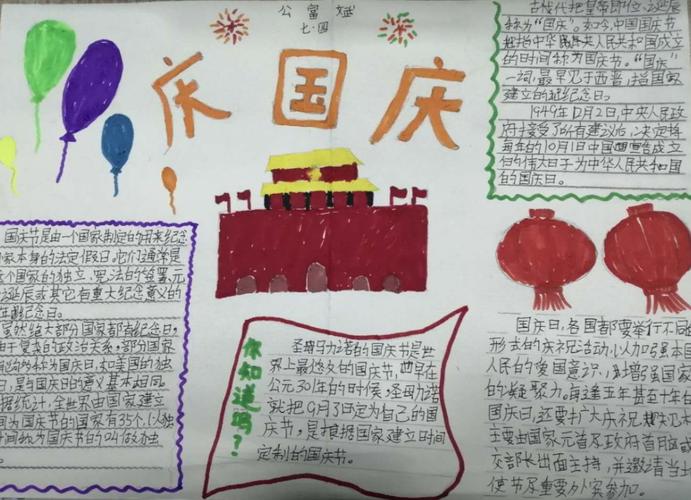 公富斌
七·四
庆国庆
古代把皇帝即位、诞辰
称为“国庆”。如今,中国国庆节
特指中华人民共和国成立
的时间称为国庆节。“国庆”
一词,最早见于西晋,指国家
建立的诞纪念日。
1949年12月2日,中央人民政
府接受了所有建议后,决定将
每年的10月1日中国宣告成立
的伟大日子为中华人民共和国
的国庆日。
国庆节是由一个国家制定的用来纪念
国家本身的法定假日。它们通常是
这个国家的独立、宪法的签署、元
首诞辰或其它有重大纪念意义的
年纪念日。
虽然绝大部分国家都有纪念日,
由于复杂的政治关系,部分国家
称为国庆日,如美国的独
日,是当国庆日的意义基本相同。
据统计,全世界由国家建立
为国庆节的国家有35个,以独
时间称为国庆节的叫做独
你知道吗?
圣马力诺的国庆节是世
界上最悠久的国庆节,他早在
公元301年的时候,圣马力诺
就把9月3日定为自己的国
庆节,是根据国家建立时间
定制的国庆节。
国庆日,各国都要举行不同
形式的庆祝活动,以加强本国
人民的爱国意识,增强国家
的凝聚力。每逢五年甚至十年的
国庆日,还要扩大庆祝规
主要由国家元首及政府首脑或
交部长出面主持,并邀请当
使节及重要外宾参加。